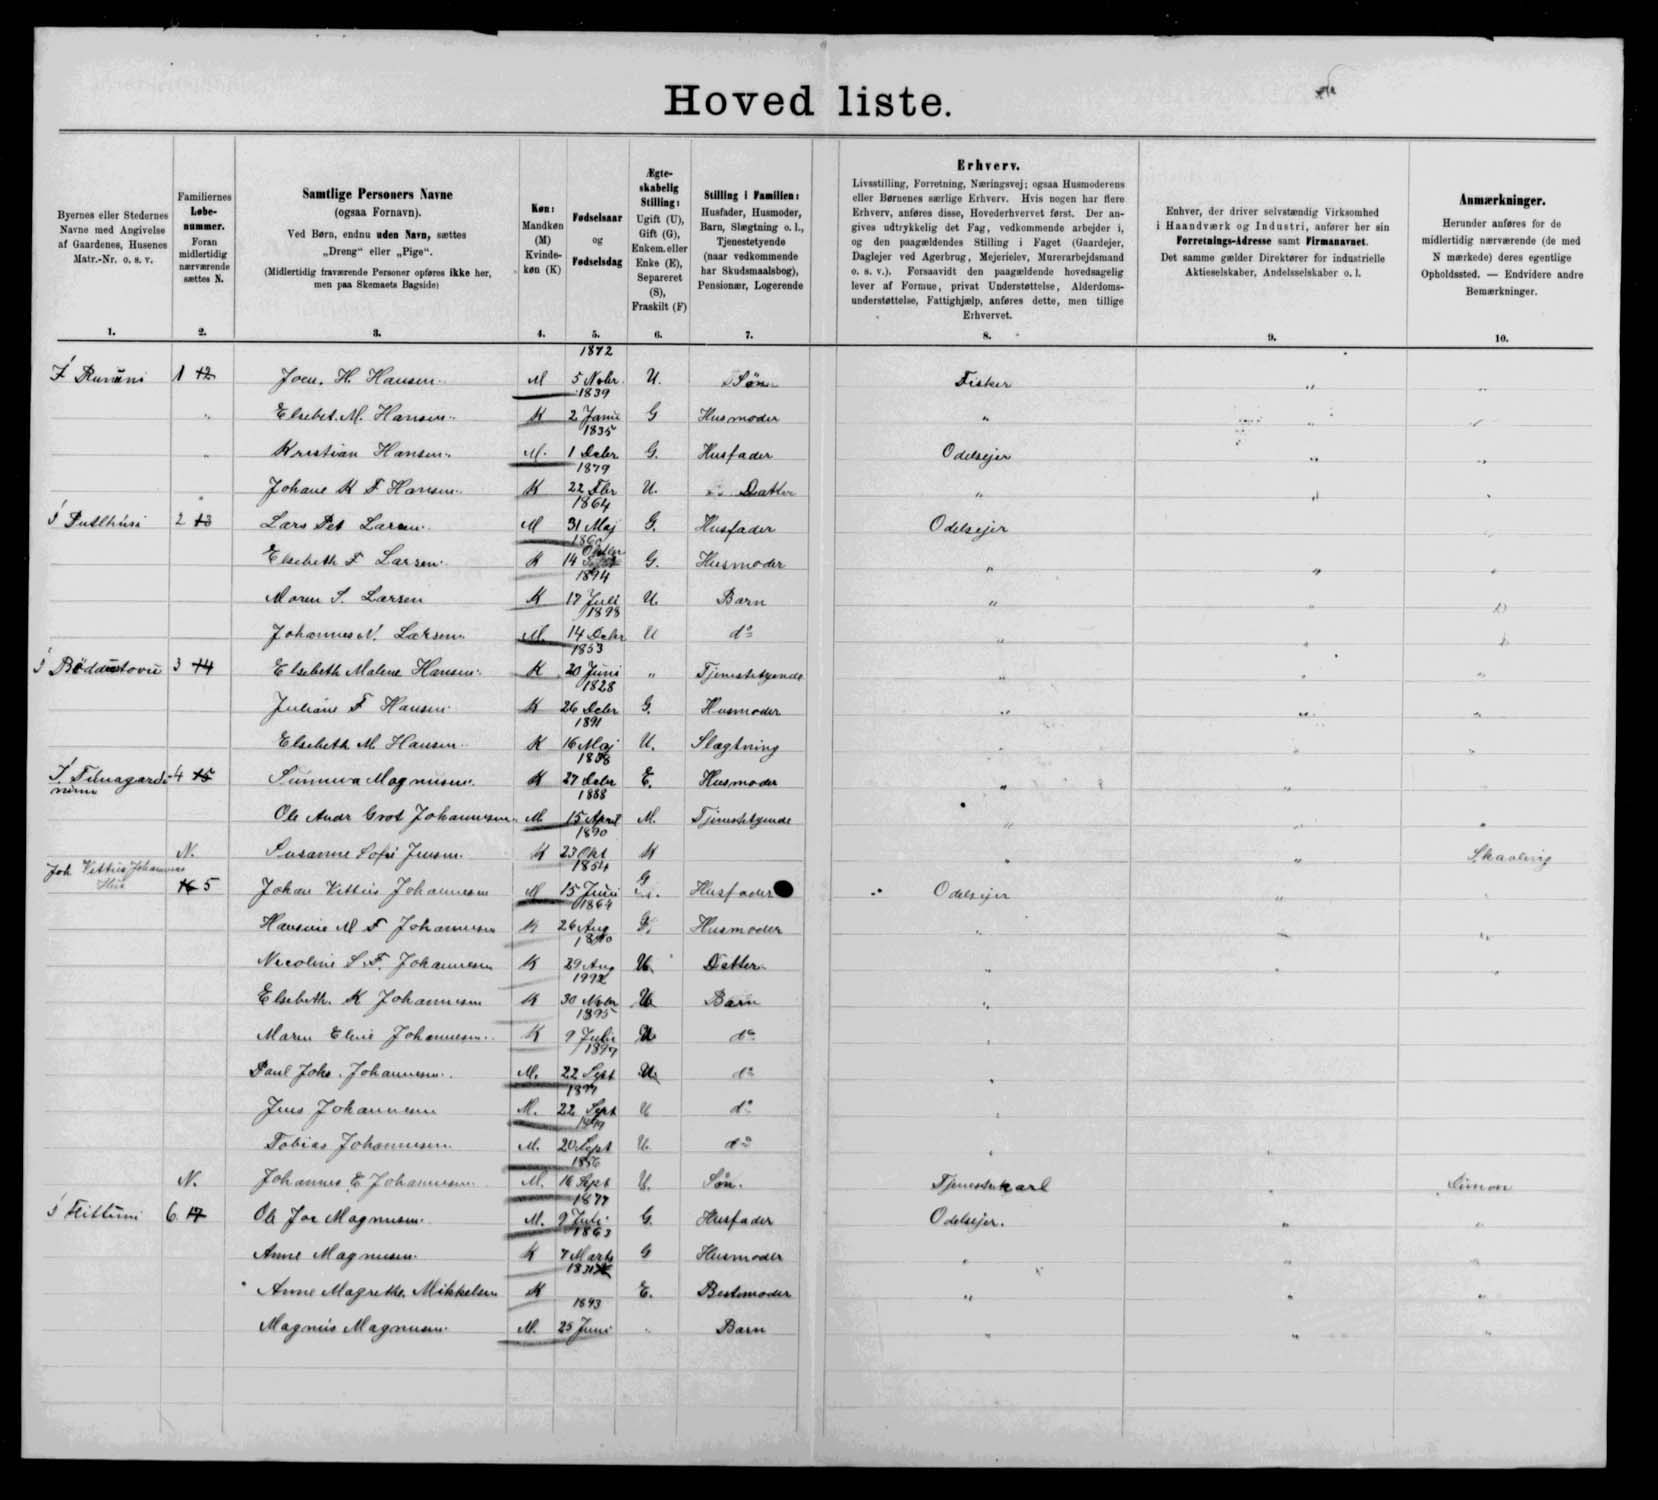 Hoved liste.
Byernes eller Stedernes
Navne med Angivelse
af Gaardenes, Husenes
Matr.-Nr. o. s. v.
1.
Familiernes
Løbe-
nummer.
Foran
midlertidig
nærværende
sættes N.
2.
Samtlige Personers Navne
(ogsaa Fornavn).
Ved Børn, endnu uden Navn, sættes
„Dreng“ eller „Pige“.
(Midlertidig fraværende Personer opføres ikke her,
men paa Skemaets Bagside)
3.
Køn:
Mandkøn
(M)
Kvinde-
køn (K)
4.
Fødselsaar
og
Fødselsdag
5.
Ægte-
skabelig
Stilling:
Ugift (U),
Gift (G),
Enkem. eller
Enke (E),
Separeret
(S),
Fraskilt (F)
6.
Stilling i Familien:
Husfader, Husmoder,
Barn, Slægtning o. l.,
Tjenestetyende
(naar vedkommende
har Skudsmaalsbog),
Pensionær, Logerende
7.
Erhverv.
Livsstilling, Forretning, Næringsvej; ogsaa Husmoderens
eller Børnenes særlige Erhverv. Hvis nogen har flere
Erhverv, anføres disse, Hovederhvervet først. Der an-
gives udtrykkelig det Fag, vedkommende arbejder i,
og den paagældendes Stilling i Faget (Gaardejer,
Daglejer ved Agerbrug, Mejerielev, Murerarbejdsmand
o. s. v.). Forsaavidt den paagældende hovedsagelig
lever af Formue, privat Understøttelse, Alderdoms-
understøttelse, Fattighjælp, anføres dette, men tillige
Erhvervet.
8.
Enhver, der driver selvstændig Virksomhed
i Haandværk og Industri, anfører her sin
Forretnings-Adresse samt Firmanavnet.
Det samme gælder Direktører for industrielle
Aktieselskaber, Andelsselskaber o. l.
9.
Anmærkninger.
Herunder anføres for de
midlertidig nærværende (de med
N mærkede) deres egentlige
Opholdssted. — Endvidere andre
Bemærkninger.
10.
1 12 Joen. H. Hansen M 1872 5 Nobr. U. Søn Fisker
Elsebet. M. Hansen K 1839 2 G Husmoder
Kristian Hansen M. 1835 1 Debr G. Husfader Odelsejer
Johane K F Hansen K 1879 22 Fbr U. Datter
2 13 Lars Pet Larsen M 1864 31 Maj G. Husfader Odelsejer
Elsebeth F Larsen K 14 G. Husmoder
Maren S. Larsen K 1894 17 Juli U. Barn
Johannes N. Larsen M. 1898 14 Debr U do
3 14 Elsebeth Malene Hansen K 1853 20 Juni Tjenestetyende
F Hansen K 1828 26 Debr G. Husmoder
Elsebeth M. Hansen K 1891 16 Maj U. Slægtning
4 15 Sunneva Magnusen K 27 Debr E. Husmoder
Ole Andr Grot Johannesen M 1888 15 April M. Tjenestetyende
N. Susanne Sofie Jensen K 1890 23 Okt K Skaaling
Joh Vittus Johannes
16 5 Johan Vittus Johannesen M 1854 15 Juni G Husfader Odelsejer
Hansine M F Johannesen K 1864 26 Aug G. Husmoder
Nicoline S. F. Johannesen K 29 Aug U Datter
Elsebeth. K Johannesen K 30 Nobr U Barn
Maren Johannesen K 1895 9 Juli U do
Paul Johs. Johannesen M. 1897 22 Sept U do
Jens Johannesen M. 22 Sept U do
Tobias Johannesen M. 20 Sept U do
N. Johannes E Johannesen M. 16 Sept U. Søn. Tjenestekarl
6 17 Ole Joe Magnusen M. 1877 9 Juli G. Husfader Odelsejer.
Anne Magnusen K 1863 7 Marts G Husmoder
Anne Magrethe. Mikkelsen K E. Bestemoder
Magnus Magnusen M. 1893 25 Juni Barn